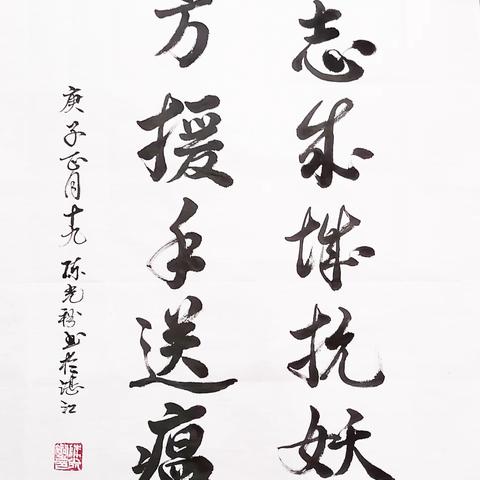 志成城抗妖
方援手送瘟
庚子正月十九 陈光 书于湛江